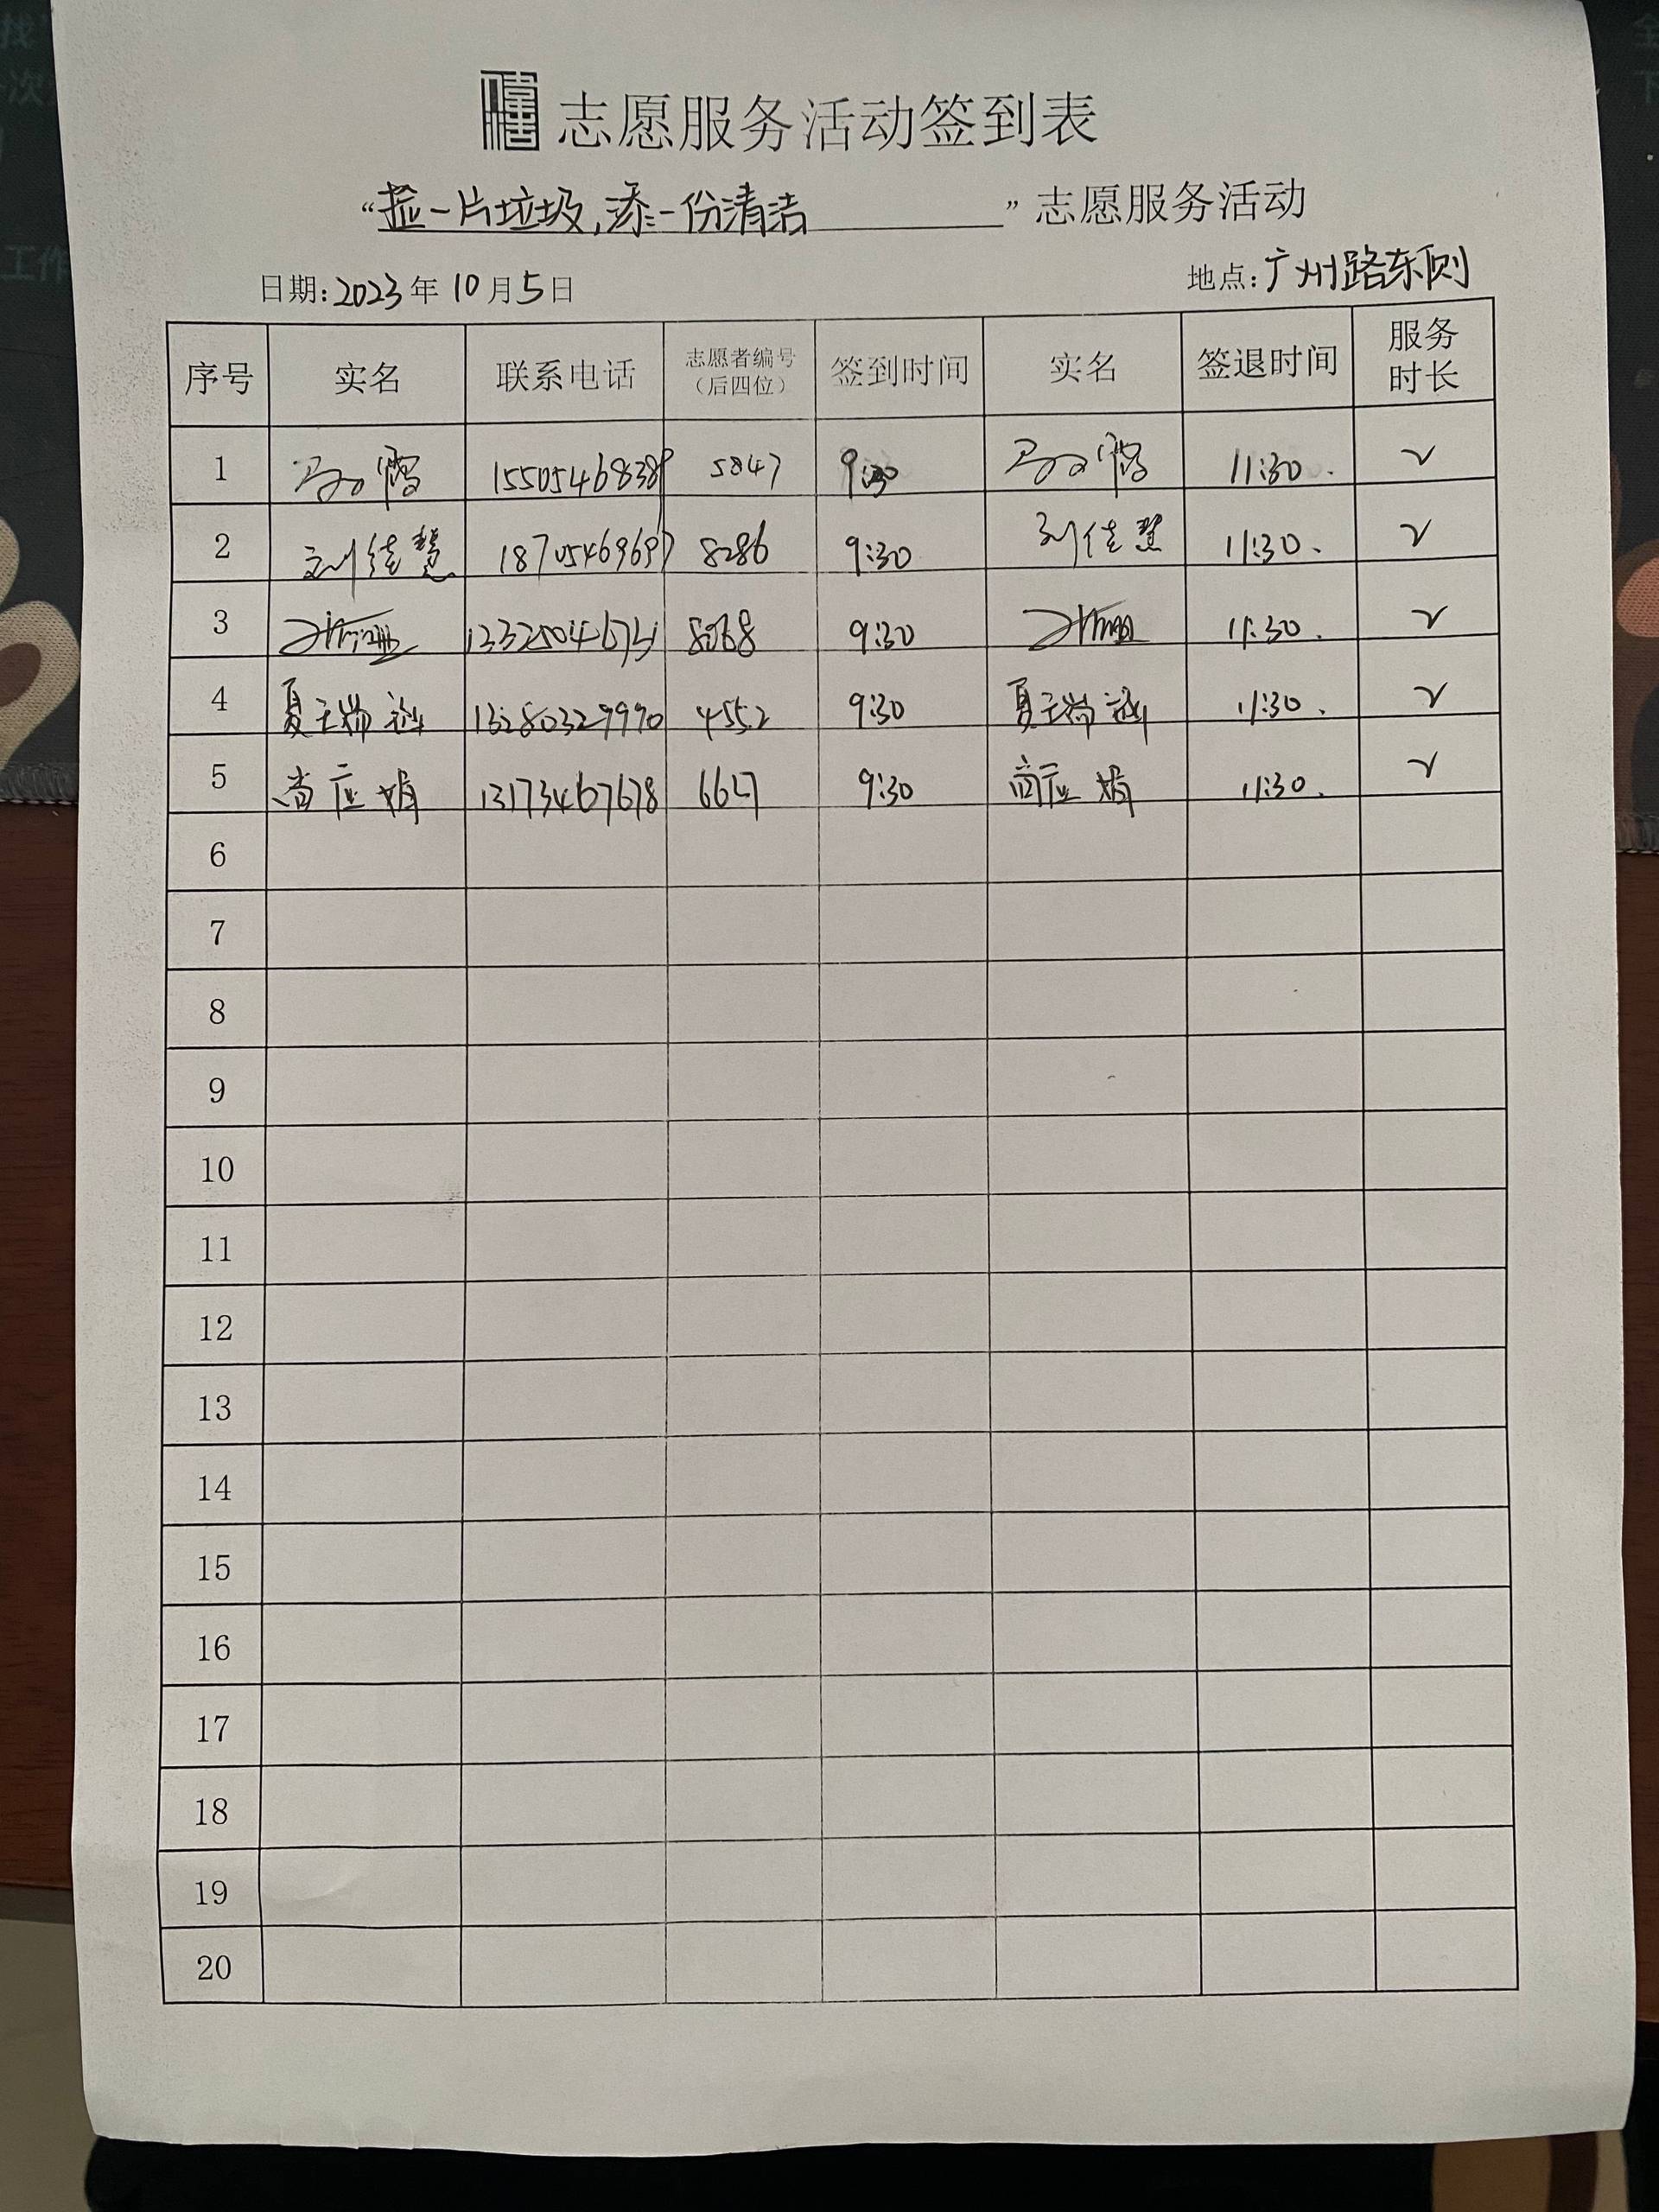 志愿服务活动签到表
“捡一片垃圾,添一份清洁”志愿服务活动
日期:2023年10月5日 地点:广州路东侧
序号 实名 联系电话 志愿者编号(后四位) 签到时间 实名 签退时间 服务时长
1 15505468389 5847 9:30 11:30. ✓
2 刘佳慧 18705469697 8286 9:30 刘佳慧 11:30. ✓
3 9:30 11:30. ✓
4 13280329990 4552 9:30 11:30. ✓
5 13173467678 9:30 11:30. ✓
6
7
8
9
10
11
12
13
14
15
16
17
18
19
20